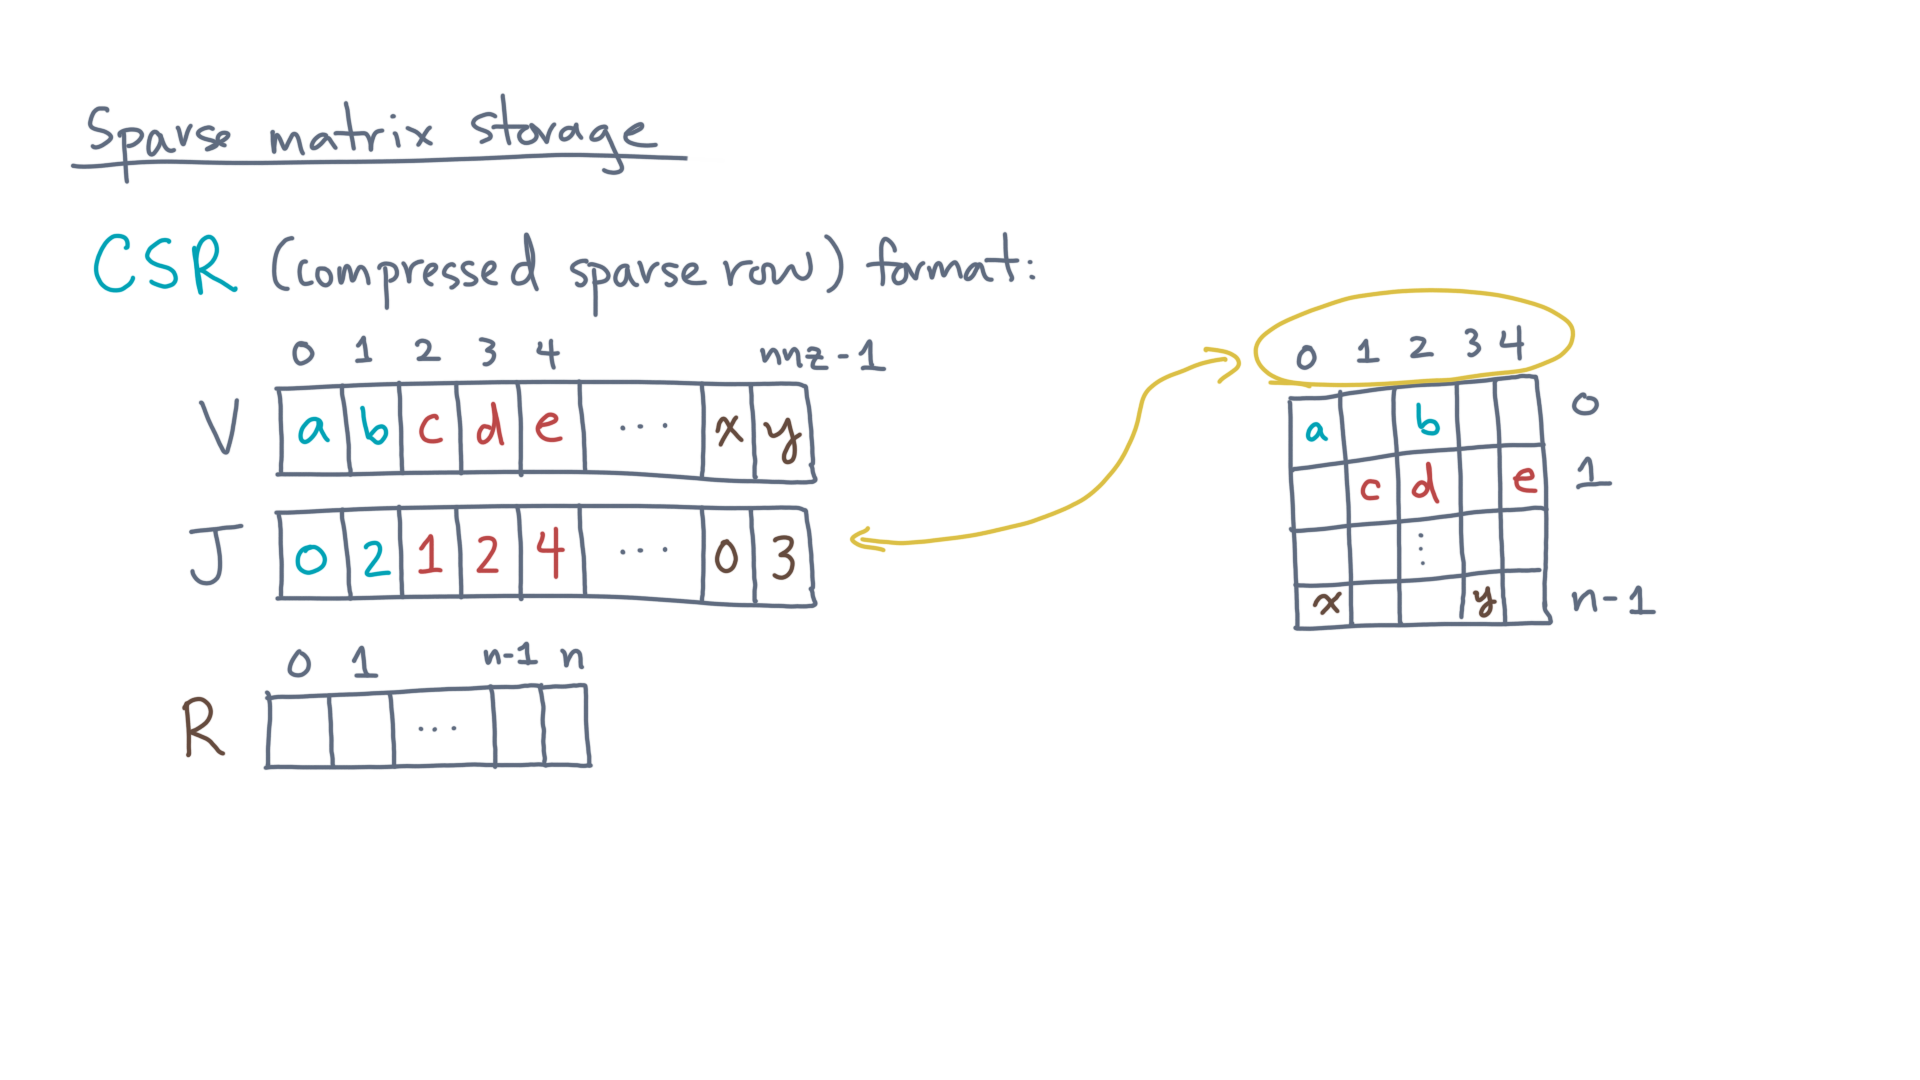 Sparse matrix storage
CSR (compressed sparse row) format:
0 1 2 3 4 nnz-1
V a b c d e ... x y
J 0 2 1 2 4 ... 0 3
0 1 n-1 n
R ...
0 1 2 3 4
a b 0
c d e 1
⋮
x y n-1